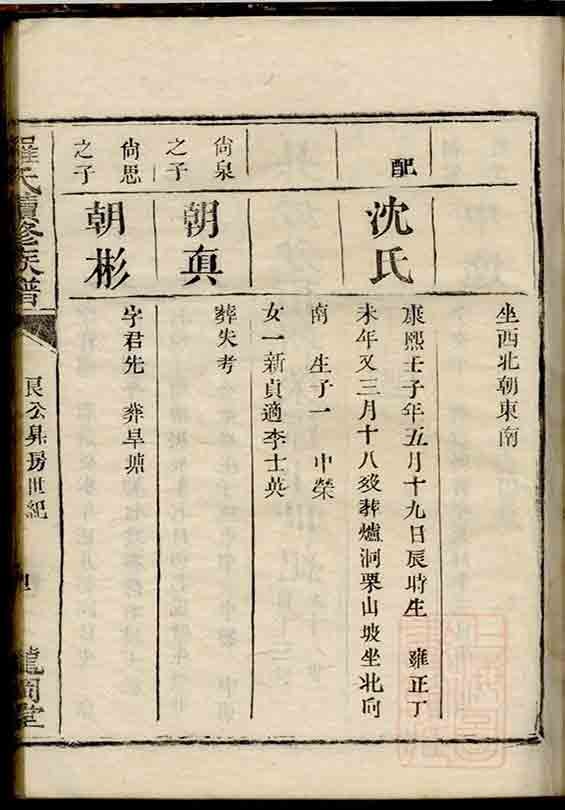 坐西北朝東南
配
沈氏
康熙壬子年五月十九日辰時生 雍正丁
未年又三月十八歿葬爐洞栗山坡坐北向
南 生子一 中榮
女一新貞適李士英
尙泉
之子
朝真
葬失考
尙思
之子
朝彬
字君先 葬旱塘
羅氏續修族譜
良公昇房世紀